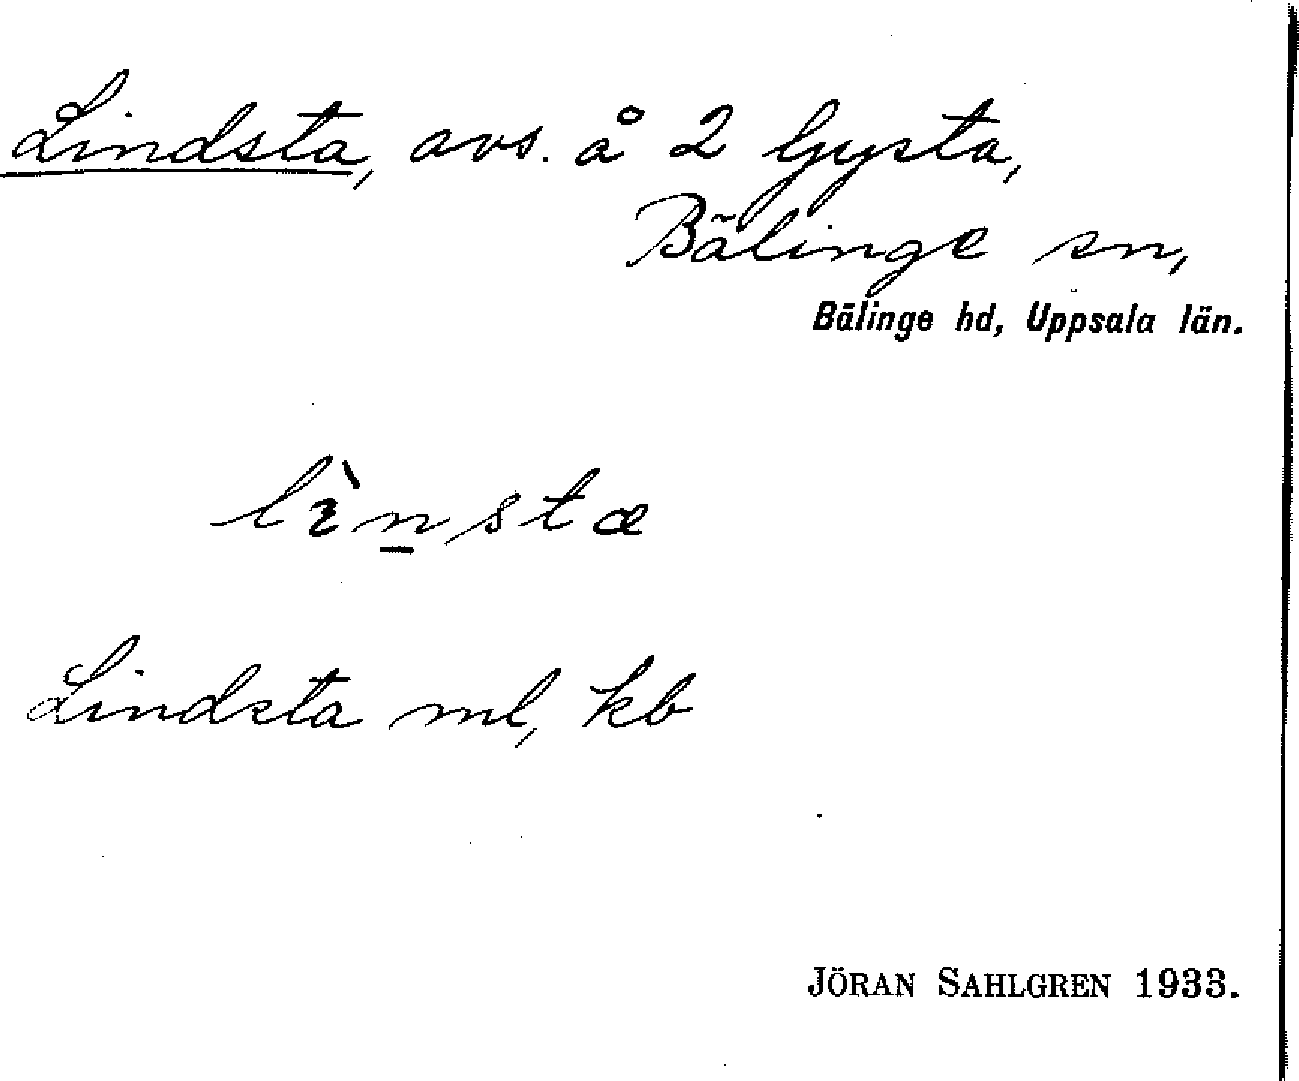 Lindsta, avs. å 2 Gysta,
Bälinge sn,
Bälinge hd, Uppsala län.
Lindsta ml, kb
JÖRAN SAHLGREN 1933.